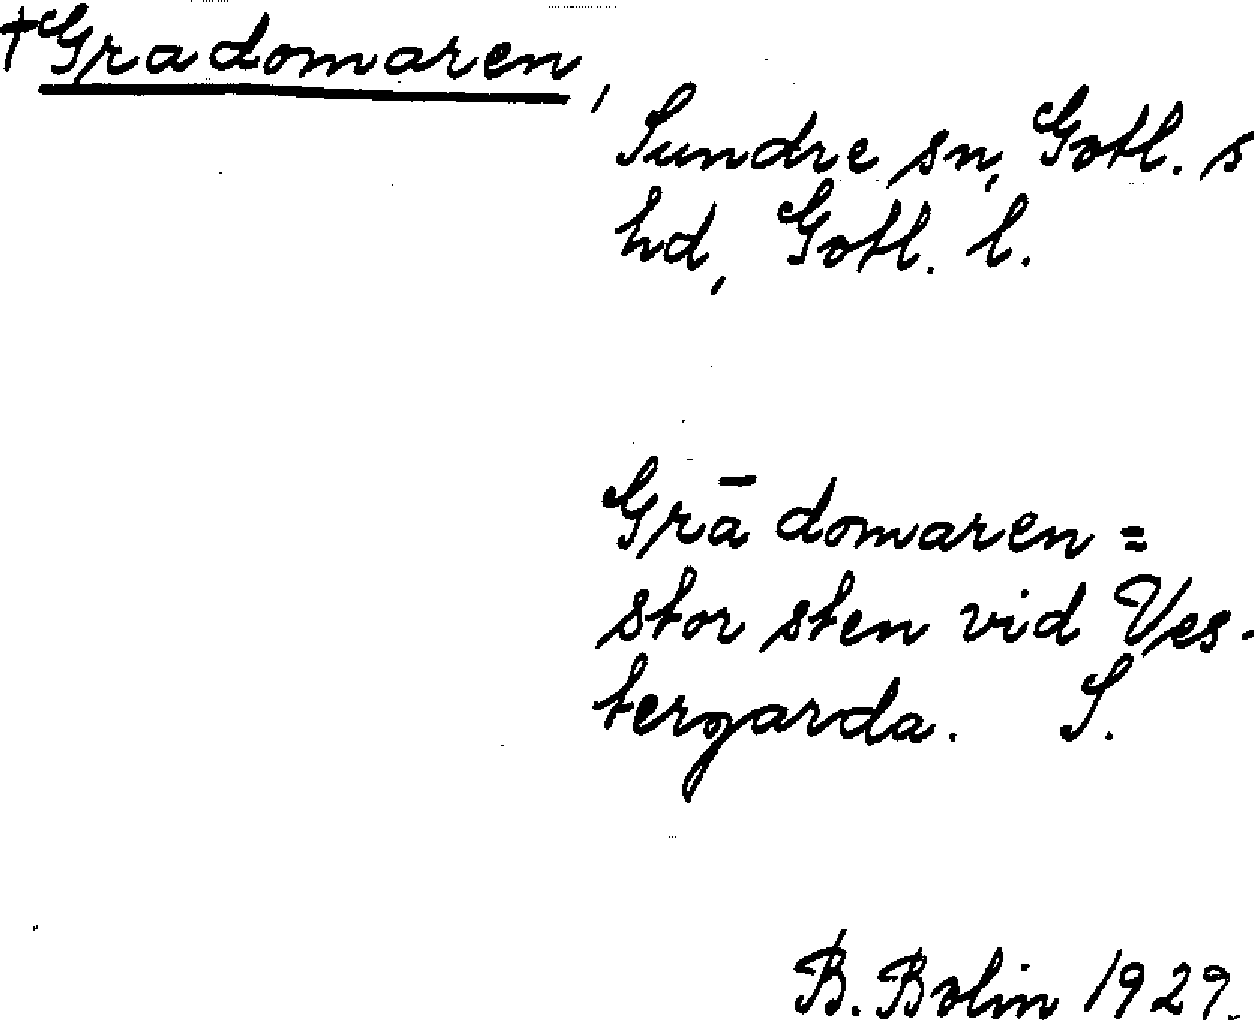 †Gradomaren,
Sundre sn, Gotl. s
hd, Gotl. l.
Grādomaren =
stor sten vid Ves-
tergarda. S.
B. Bolin 1929.